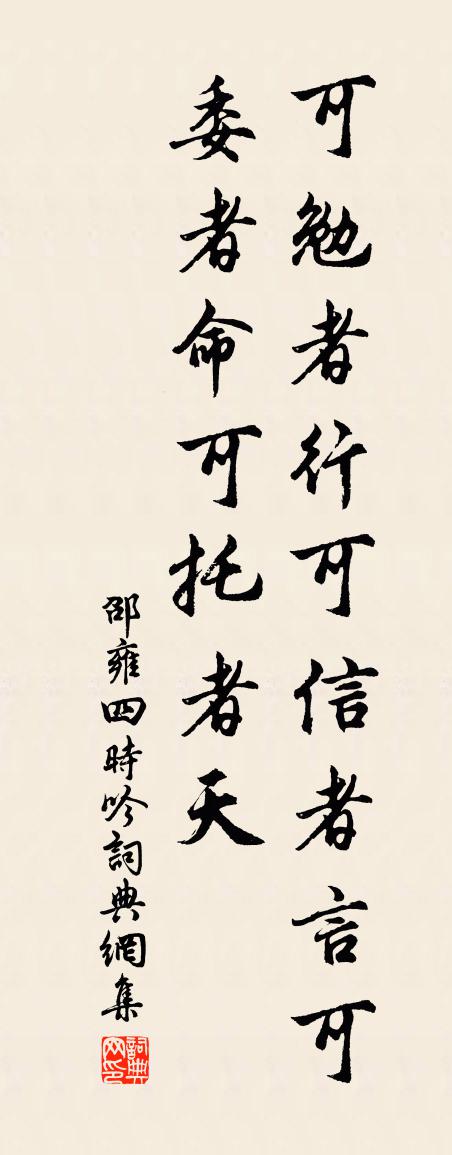 可勉者行可信者言可
委者命可托者天
邵雍四時吟詞典網集
詞典网印